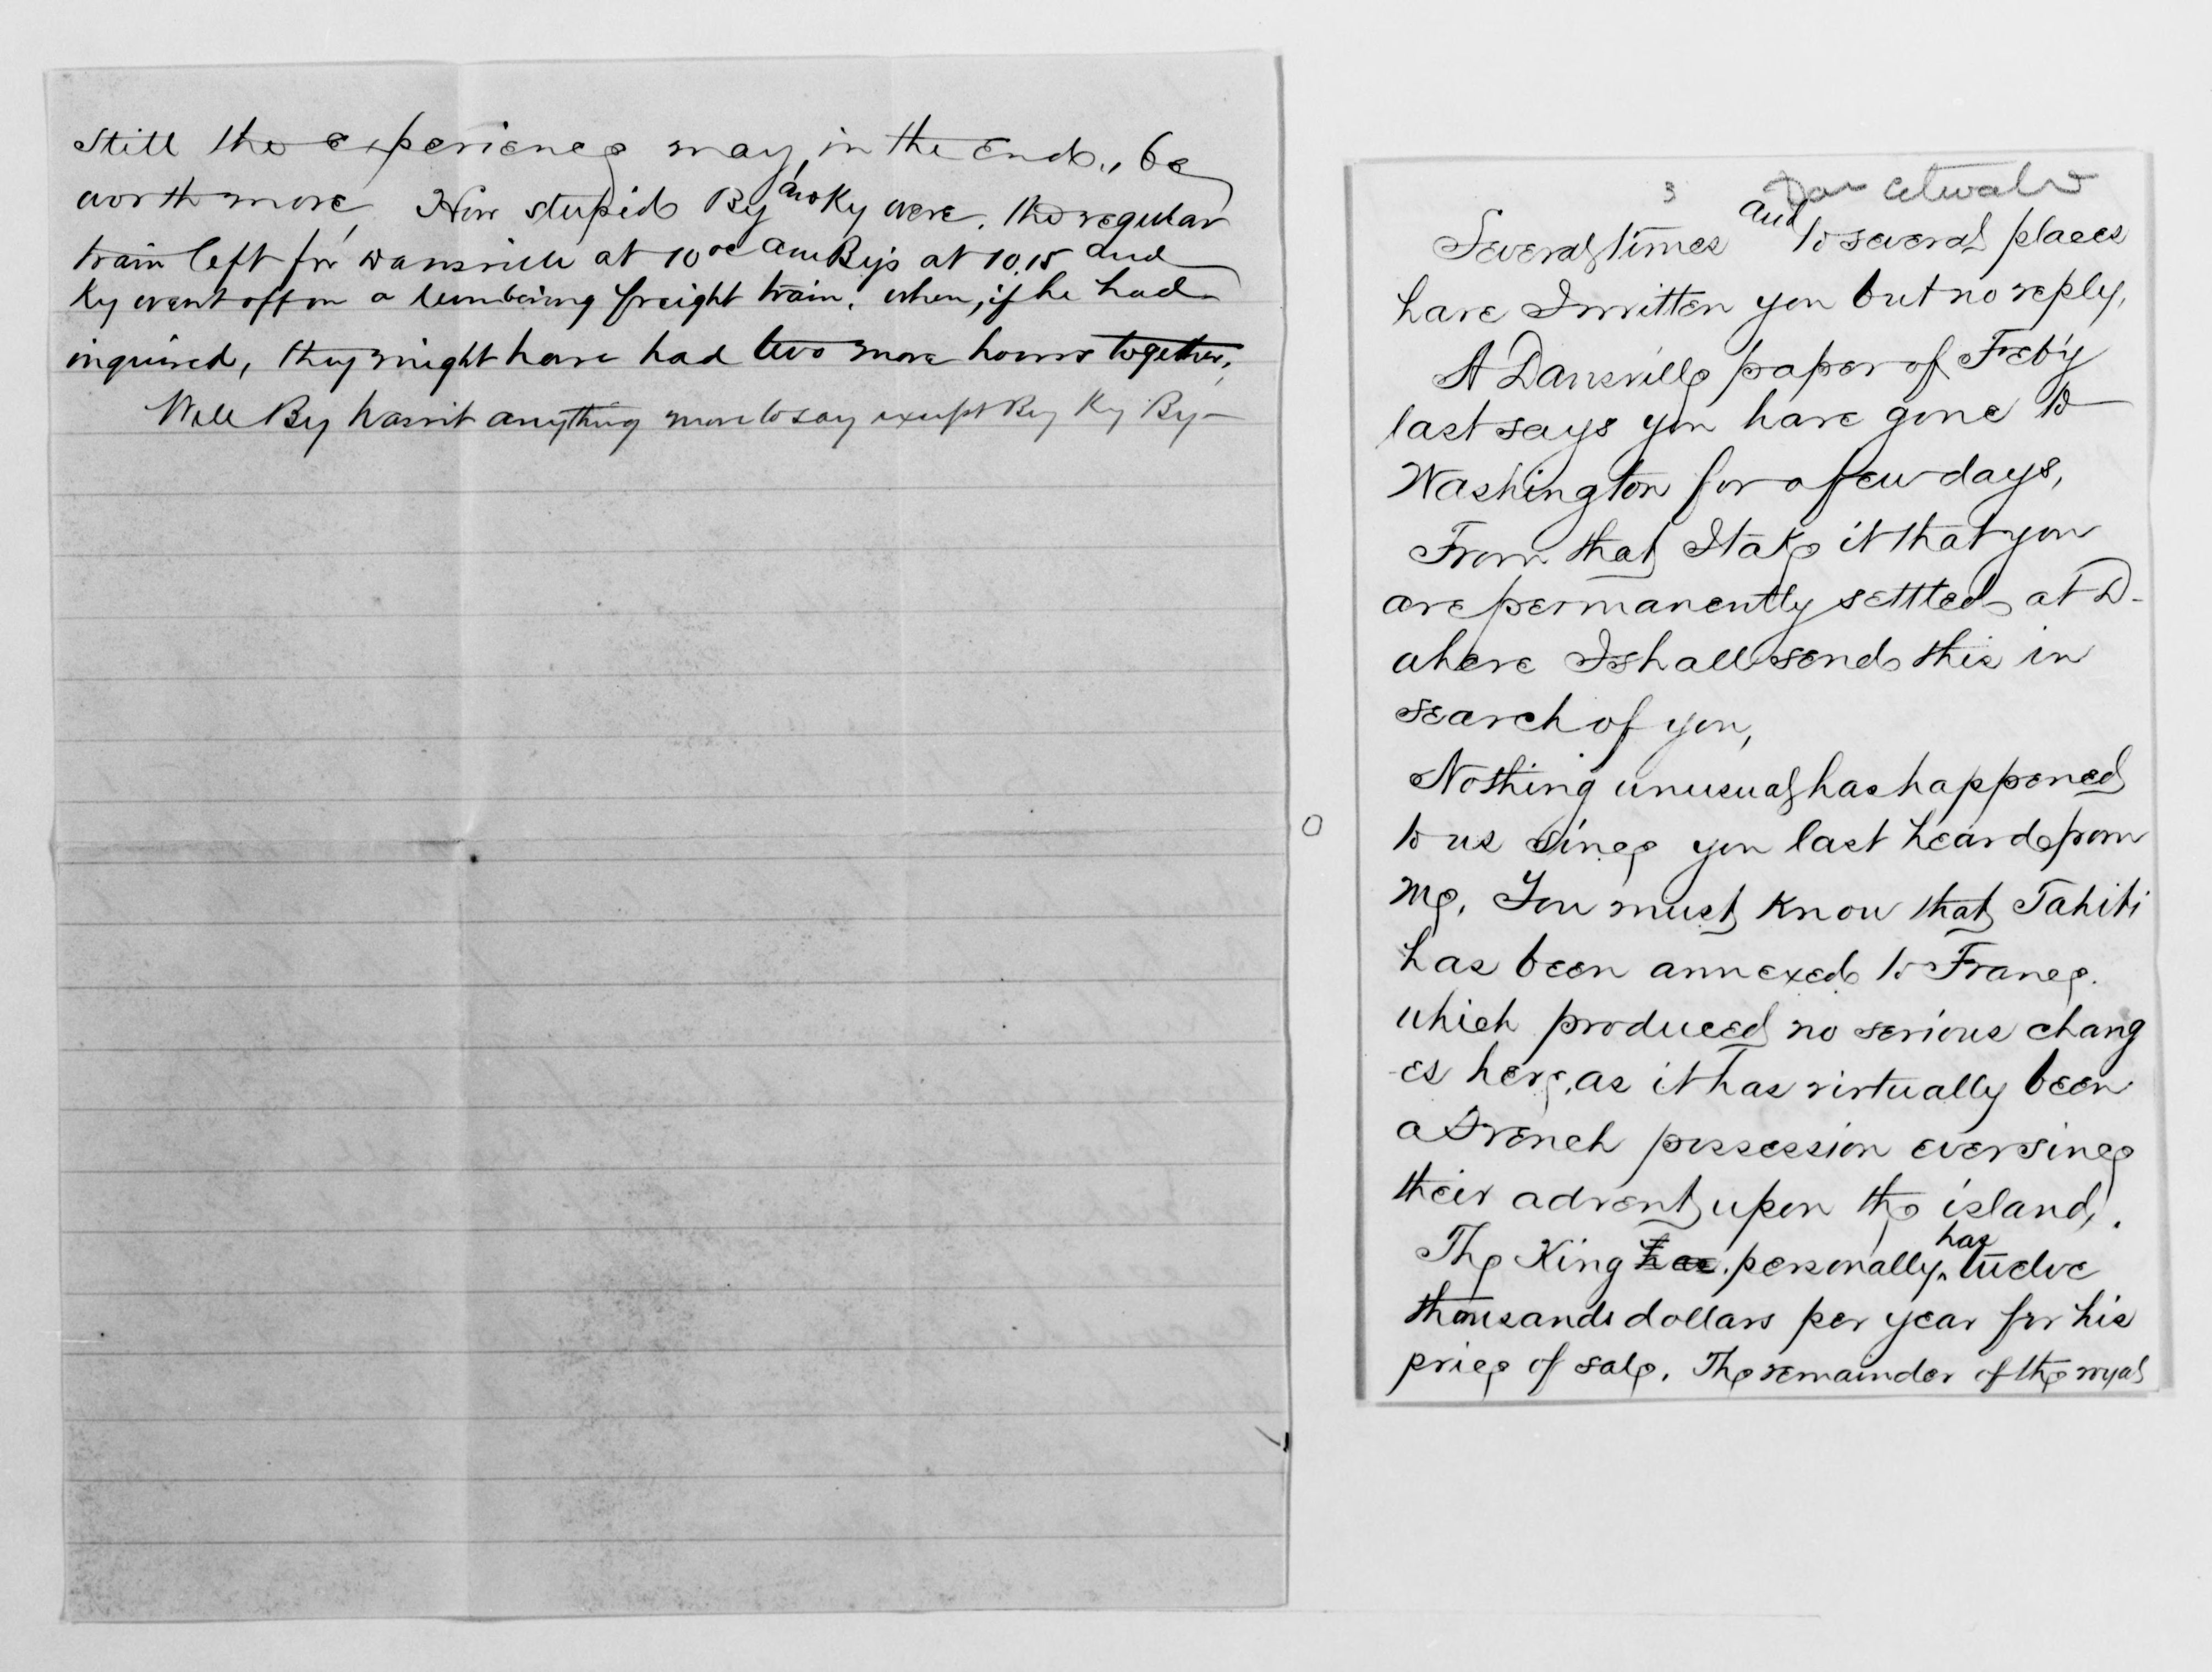 Still the experience may, in the end, be
worth more, How stupid By and Ky were. the regular
train left for Dansville at 10 oc am By's at 10.15 and
Ky went off on a lumbering freight train. when, if he had
inquired, they might have had two more hours together,
Well By hasn't anything more to say except By Ky By—
3 Dor Atwater
Several times and to several places
have I written you but no reply,
A Dansville paper of Feb'y
last says you have gone to
Washington for a few days,
From that I take it that you
are permanently settled at D-
where I shall send this in
search of you,
Nothing unusual has happened
to us since you last heard from
me. You must know that Tahiti
has been annexed to France.
which produced no serious chang
-es here, as it has virtually been
a French possession ever since
their advent upon the island,.
The King has personally has twelve
thousands dollars per year for his
price of sale. The remainder of the royal